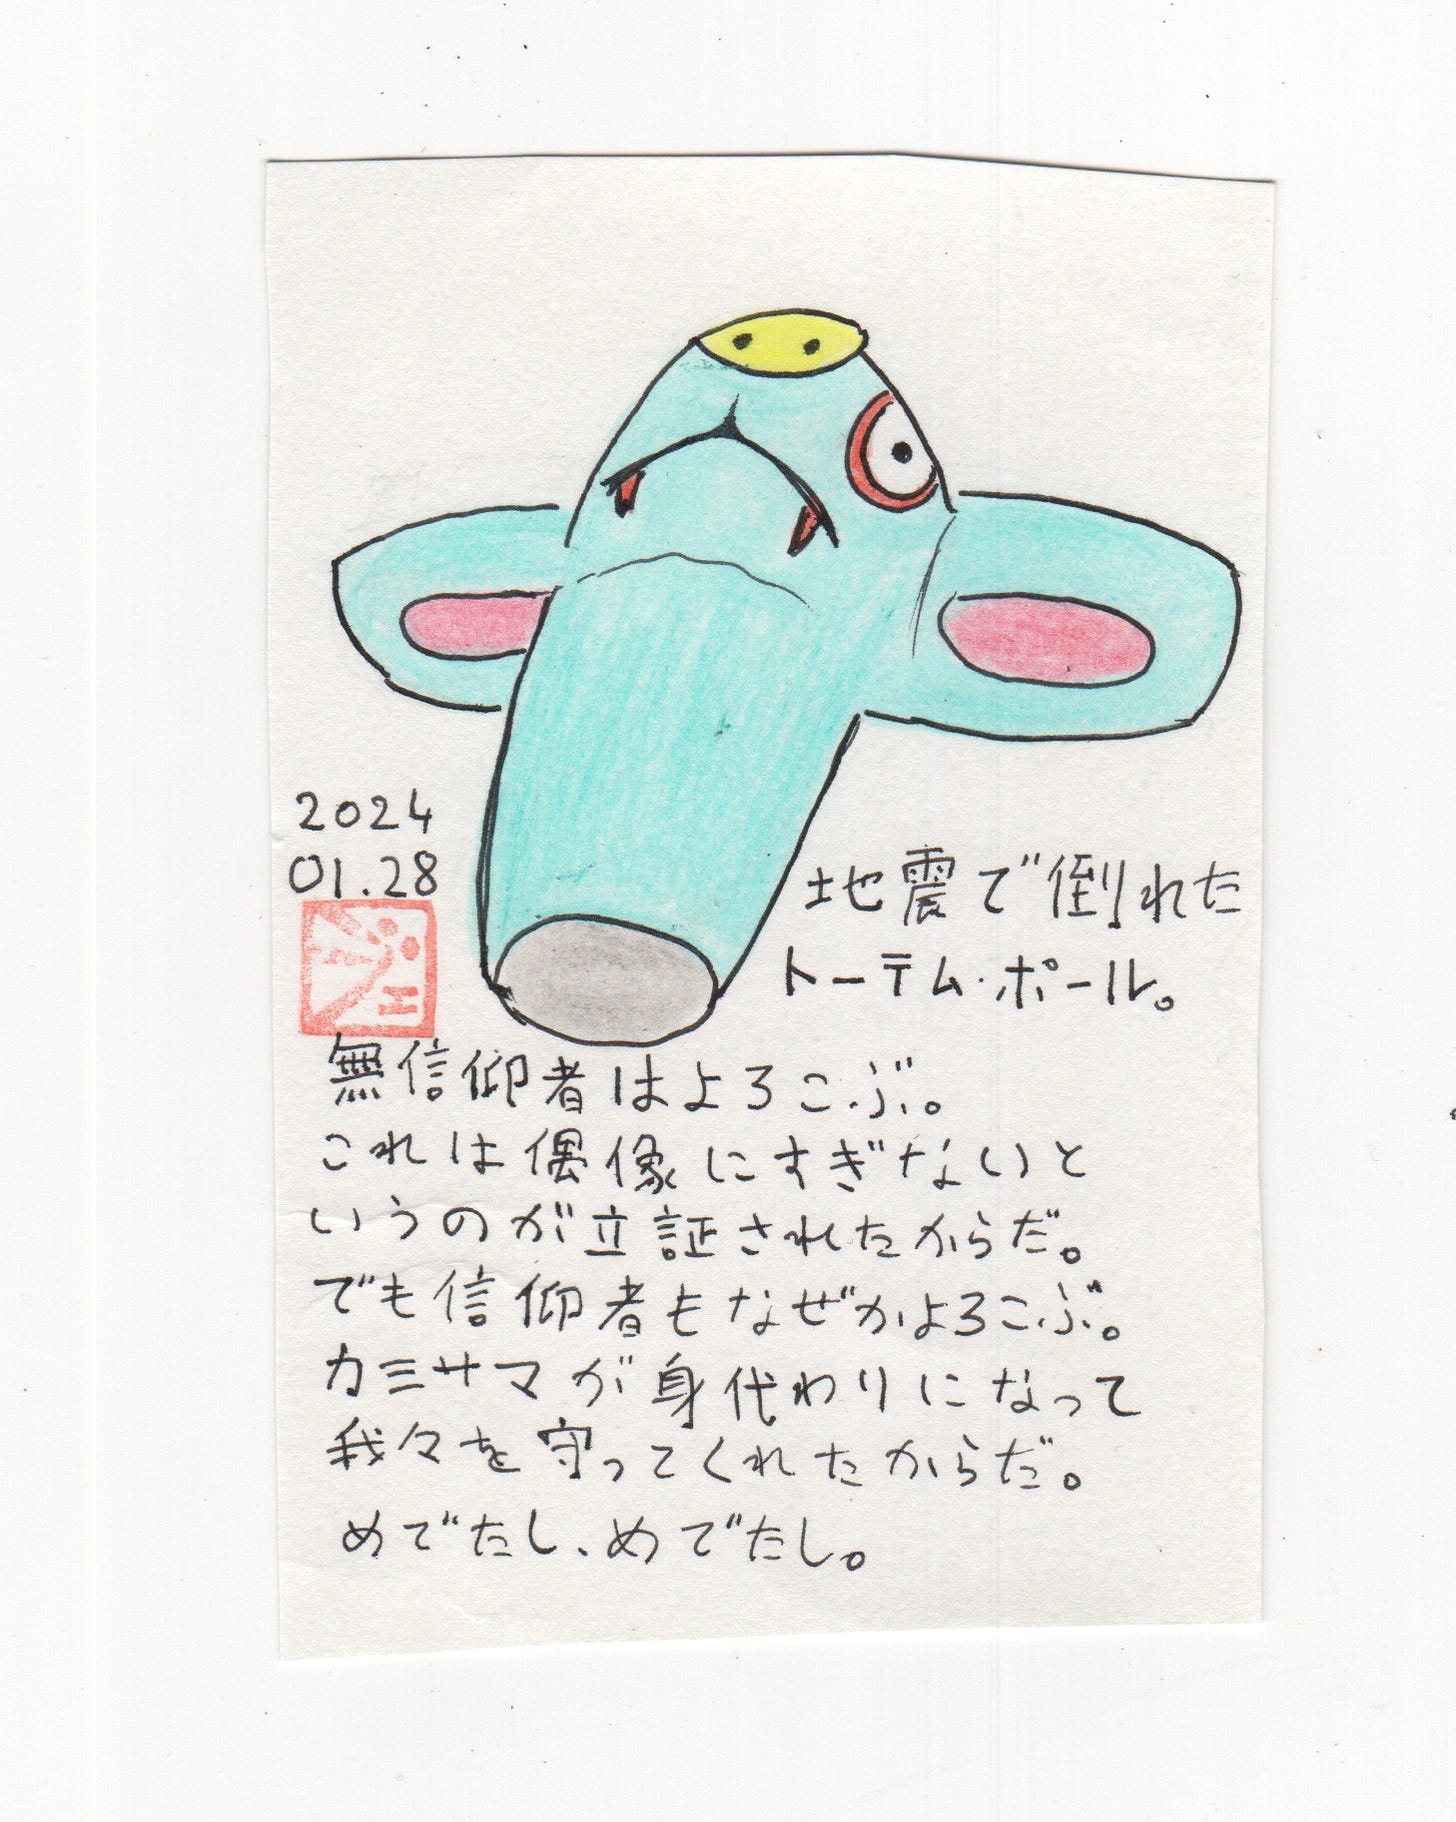 2024
01.28
地震で倒れた
トーテム・ポール。
無信仰者はよろこぶ。
これは偶像にすぎないと
いうのが立証されたからだ。
でも信仰者もなぜかよろこぶ。
カミサマが身代わりになって
我々を守ってくれたからだ。
めでたし、めでたし。